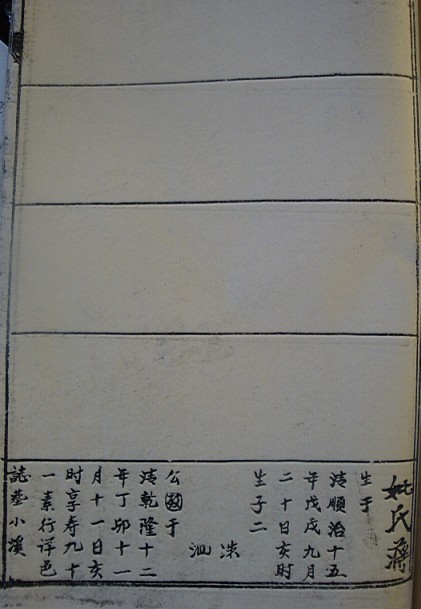 妣氏蔣
生于
清順治十五
年戊戌九月
二十日亥时
生子二
洙
泗
公于
清乾隆十二
年丁卯十一
月十一日亥
时享寿九十
一素行详邑
誌塟小溪